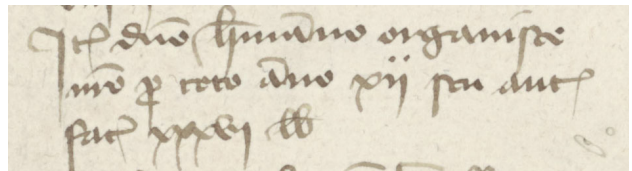 Itē dnō hermāno organiste
mō p toto āno xij scu ant
facē xxxvij lb